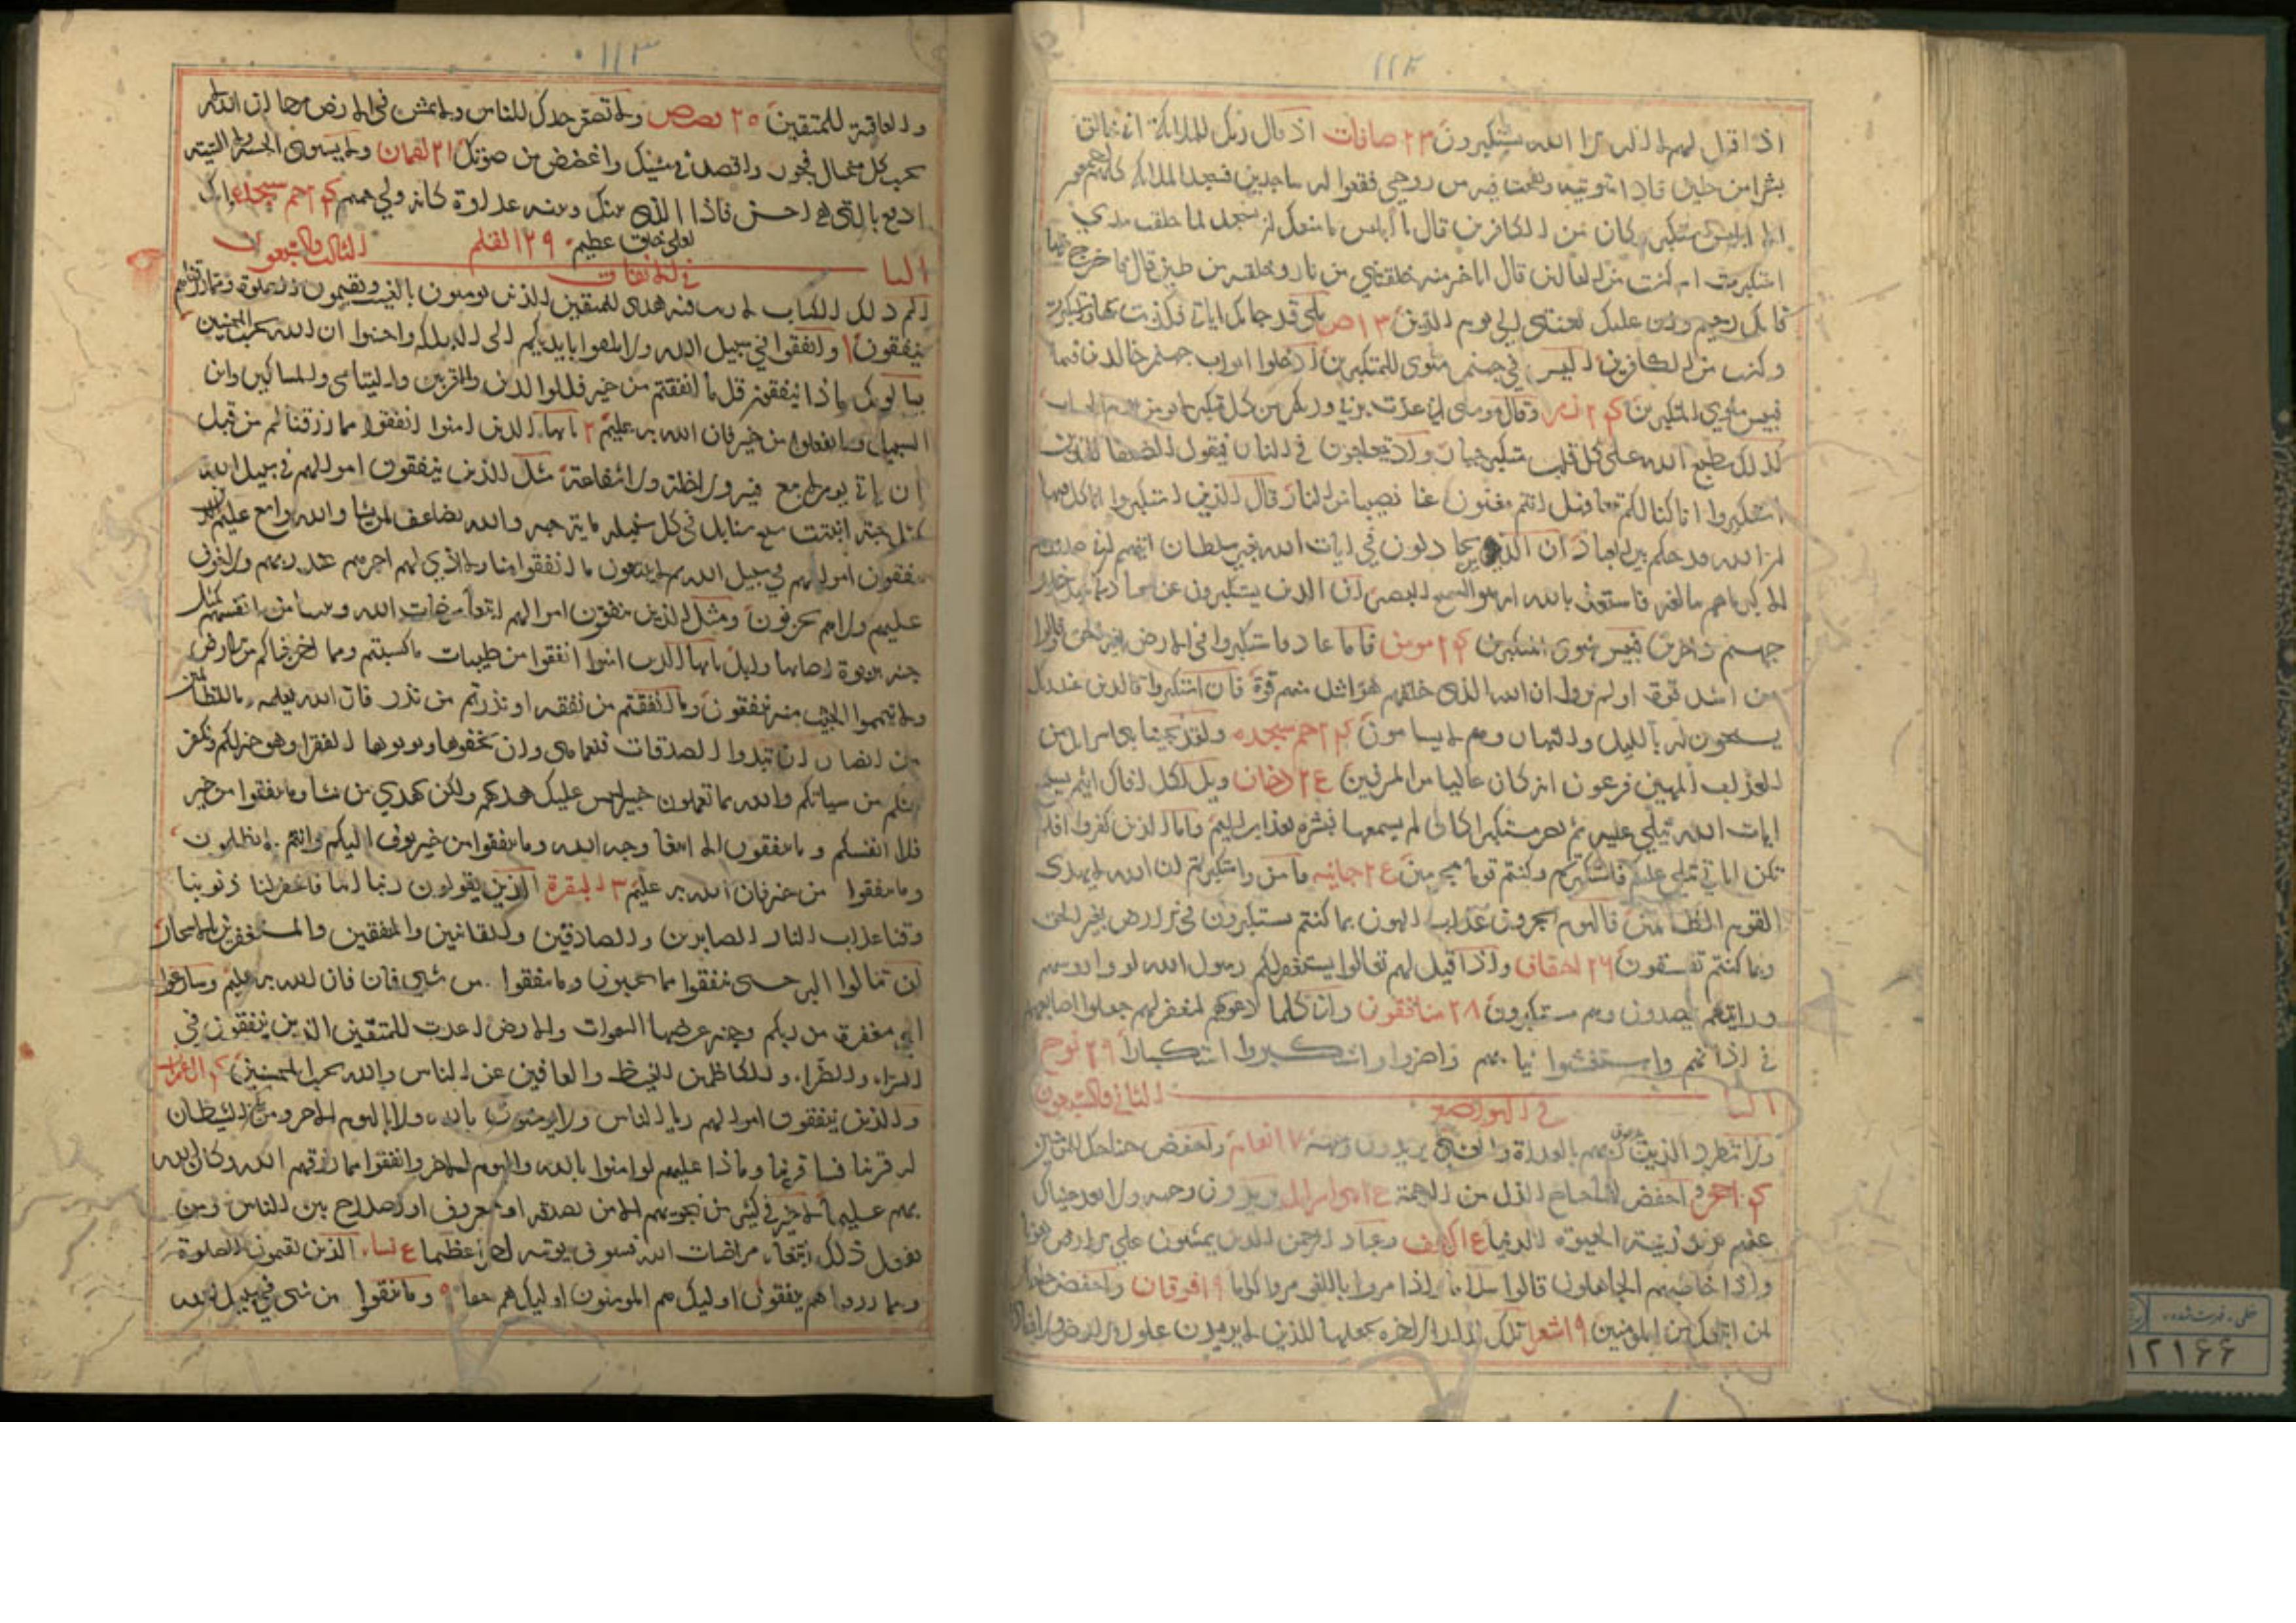 ١١٢
اذا قيل لهم لا اله الا الله يستكبرون ٢٣ صافات اذ قال ربك للملائكة اني خالق
بشرا من طين فاذا سويته ونفخت فيه من روحي فقعوا له ساجدين فسجد الملائكة كلهم اجمعون
الا ابليس استكبر وكان من الكافرين قال يا ابليس ما منعك ان تسجد لما خلقت بيدي
استكبرت ام كنت من العالين قال انا خير منه خلقتني من نار وخلقته من طين قال فاخرج منها
فانك رجيم وان عليك لعنتي الى يوم الدين ٢٣ ص بلى قد جاتك اياتي فكذبت بها واستكبرت
وكنت من الكافرين اليس في جهنم مثوى للمتكبرين ادخلوا ابواب جهنم خالدين فيها
فبيس مثوى المتكبرين ٢٤ زمر وقال موسى اني عذت بربي وربكم من كل متكبر لا يومن بيوم الحساب
كذلك يطبع الله على كل قلب متكبر جبار واذ يتحاجون في النار فيقول الضعفا للذين
استكبروا انا كنا لكم تبعا فهل انتم مغنون عنا نصيبا من النار قال الذين استكبروا انا كل فيها
ان الله قد حكم بين العباد ان الذين يجادلون في ايات الله بغير سلطان اتيهم ان في صدورهم
الا كبر ما هم ببالغيه فاستعذ بالله انه هو السميع البصير ان الذين يستكبرون عن عبادتي سيدخلون
جهنم داخرين فبيس مثوى المتكبرين ٢٤ مومن فاما عاد فاستكبروا في الارض بغير الحق وقالوا
من اشد قوة اولم يروا ان الله الذي خلقهم هو اشد منهم قوة فان استكبروا فالذين عند ربك
يسبحون له بالليل والنهار وهم لا يسامون ٢٤ حم سجده ولقد نجينا بني اسرائيل من
العذاب المهين من فرعون انه كان عاليا من المسرفين ٢٤ دخان ويل لكل افاك اثيم يسمع
ايات الله تتلى عليه ثم يصر مستكبرا كان لم يسمعها فبشره بعذاب اليم واما الذين كفروا افلم
تكن اياتي تتلى عليكم فاستكبرتم وكنتم قوما مجرمين ٢٤ جاثيه فامن واستكبرتم ان الله لا يهدي
القوم الظالمين فاليوم تجزون عذاب الهون بما كنتم تستكبرون في الارض بغير الحق
وبما كنتم تفسقون ٢٦ احقاف واذا قيل لهم تعالوا يستغفر لكم رسول الله لووا روسهم
ورايتهم يصدون وهم مستكبرون ٢٨ منافقون واني كلما دعوتهم لتغفر لهم جعلوا اصابعهم
في اذانهم واستغشوا ثيابهم واصروا واستكبروا استكبارا ٢٩ نوح
البا الثاني والسبعون
في التواضع
ولا تطرد الذين يدعون ربهم بالغداة والعشي يريدون وجهه ٧ انعام واخفض جناحك للمومنين
حجر واخفض لهما جناح الذل من الرحمة بني اسرائيل يريدون وجهه ولا تعد عيناك
عنهم تريد زينة الحيوة الدنيا كهف وعباد الرحمن الذين يمشون على الارض هونا
واذا خاطبهم الجاهلون قالوا سلاما واذا مروا باللغو مروا كراما ١٩ فرقان واخفض جناحك
لمن اتبعك من المومنين ١٩ شعرا تلك الدار الاخرة نجعلها للذين لا يريدون علوا في الارض ولا فسادا
١١٣
والعاقبة للمتقين ٢٠ قصص ولا تصعر خدك للناس ولا تمش في الارض مرحا ان الله لا
يحب كل مختال فخور واقصد في مشيك واغضض من صوتك ٢١ لقمان ولا يستوي الحسنة ولا السيئة
ادفع بالتي هي احسن فاذا الذي بينك وبينه عداوة كانه ولي حميم ٢٤ حم سجده وانك
لعلى خلق عظيم ٢٩ القلم
البا الثالث والسبعون
في الانفاق
الم ذلك الكتاب لا ريب فيه هدى للمتقين الذين يومنون بالغيب ويقيمون الصلوة ومما رزقناهم
ينفقون ١ وانفقوا في سبيل الله ولا تلقوا بايديكم الى التهلكة واحسنوا ان الله يحب المحسنين
يسالونك ماذا ينفقون قل ما انفقتم من خير فللوالدين والاقربين واليتامى والمساكين وابن
السبيل وما تفعلوا من خير فان الله به عليم ٢ يا ايها الذين امنوا انفقوا مما رزقناكم من قبل
ان ياتي يوم لا بيع فيه ولا خلة ولا شفاعة مثل الذين ينفقون اموالهم في سبيل الله
كمثل حبة انبتت سبع سنابل في كل سنبلة ماية حبه والله يضاعف لمن يشا والله واسع عليم الذين
ينفقون اموالهم في سبيل الله ثم لا يتبعون ما انفقوا منا ولا اذي لهم اجرهم عند ربهم ولا خوف
عليهم ولا هم يحزنون ومثل الذين ينفقون اموالهم ابتغا مرضات الله وتثبيتا من انفسهم كمثل
جنه بربوة اصابها وابل يا ايها الذين امنوا انفقوا من طيبات ما كسبتم ومما اخرجنا لكم من الارض
ولا تيمموا الخبيث منه تنفقون وما انفقتم من نفقه او نذرتم من نذر فان الله يعلمه وما للظالمين
من انصار ان تبدوا الصدقات فنعما هي وان تخفوها وتوتوها الفقرا وهو خير لكم ونكفر
عنكم من سياتكم والله بما تعملون خبير ليس عليك هديهم ولكن الله يهدي من يشا وما تنفقوا من خير
فلا انفسكم وما تنفقون الا ابتغا وجه الله وما تنفقوا من خير يوف اليكم وانتم لا تظلمون
وما تنفقوا من خير فان الله به عليم ٣ البقرة الذين يقولون ربنا اننا امنا فاغفر لنا ذنوبنا
وقنا عذاب النار الصابرين والصادقين والقانتين والمنفقين والمستغفرين بالاسحار
لن تنالوا البر حتى تنفقوا مما تحبون وما تنفقوا من شيي فان فان الله به عليم وسارعوا
الى مغفرة من ربكم وجنة عرضها السموات والارض اعدت للمتقين الذين ينفقون في
السراء والضراء والكاظمين الغيظ والعافين عن الناس والله يحب المحسنين ٤ ال عمران
والذين ينفقون اموالهم ريا الناس ولا يومنون بالله ولا باليوم الاخر ومن يكن الشيطان
له قرينا فسا قرينا وماذا عليهم لو امنوا بالله واليوم الاخر وانفقوا مما رزقهم الله وكان الله
بهم عليما لا خير في كثير من نجويهم الا من امر بصدقة او معروف او اصلاح بين الناس ومن
يفعل ذلك ابتغاء مرضات الله فسوف نوتيه اجرا عظيما نساء الذين يقيمون الصلوة
ومما رزقناهم ينفقون اوليك هم المومنون اوليك هم حقا ٩ وما تنفقوا من شي في سبيل الله
خطی - فهرست شده
١٢١٦٦